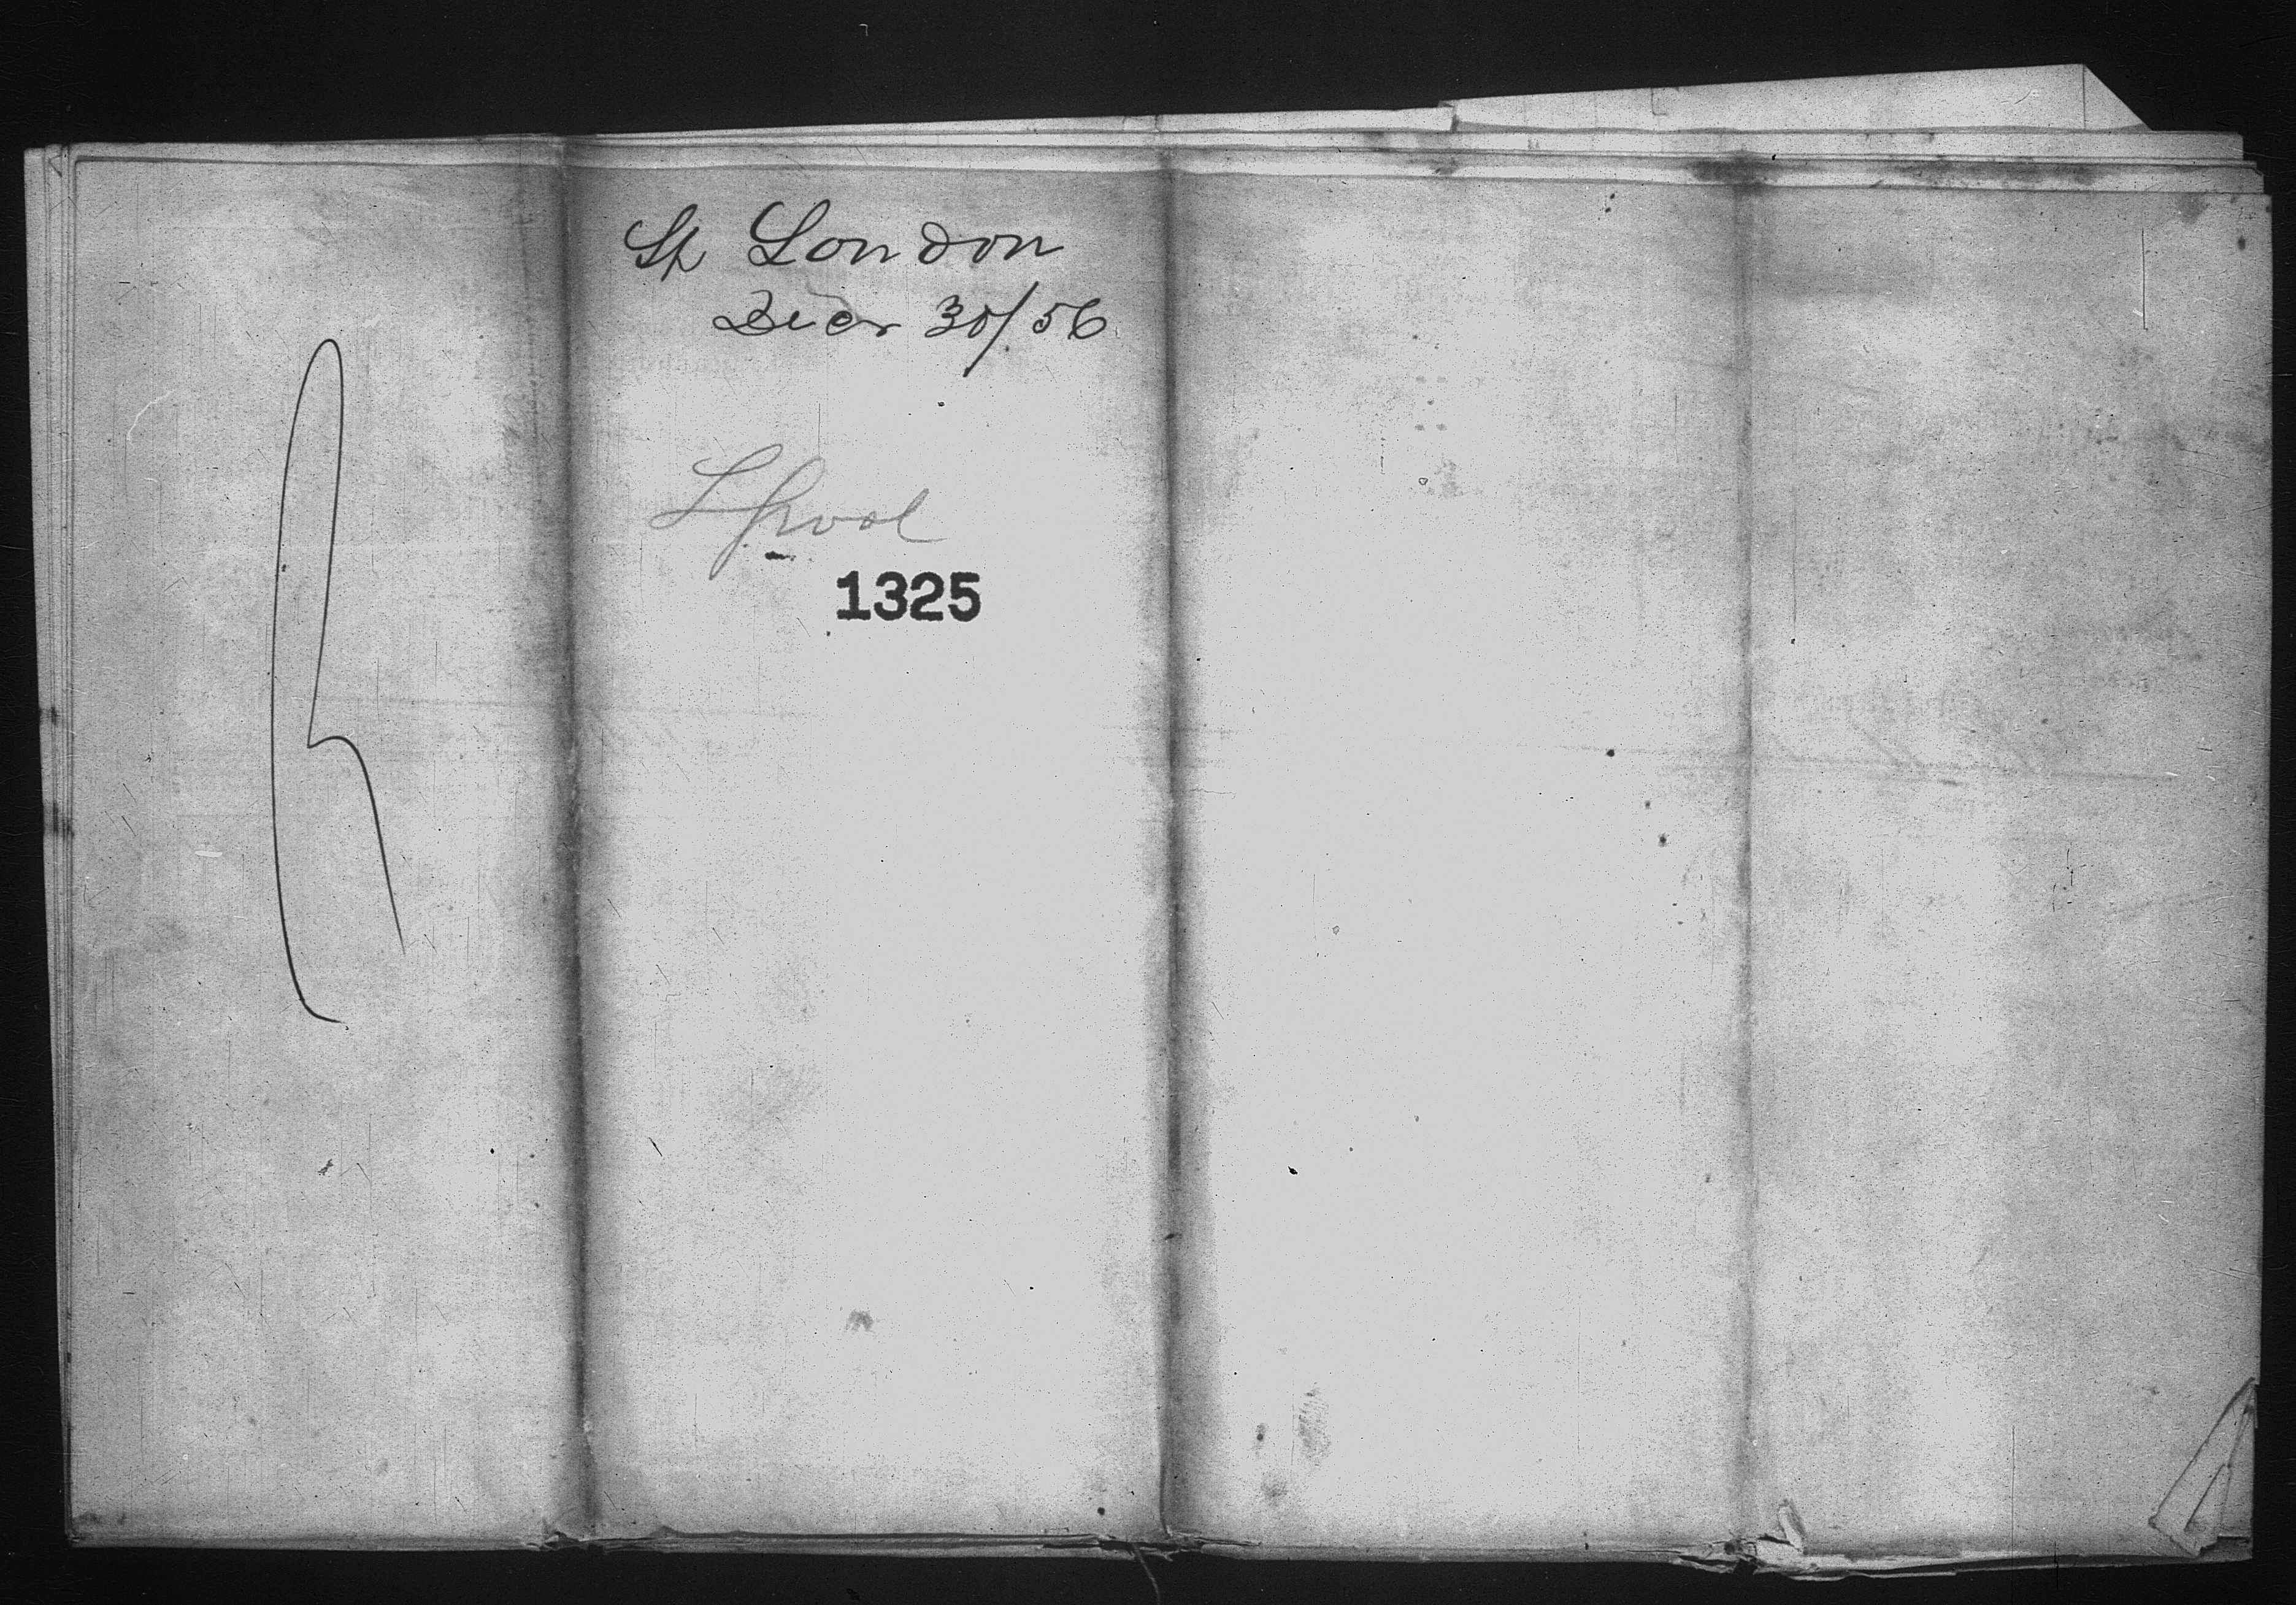 St London
Decr 30/56
Lpool
1325